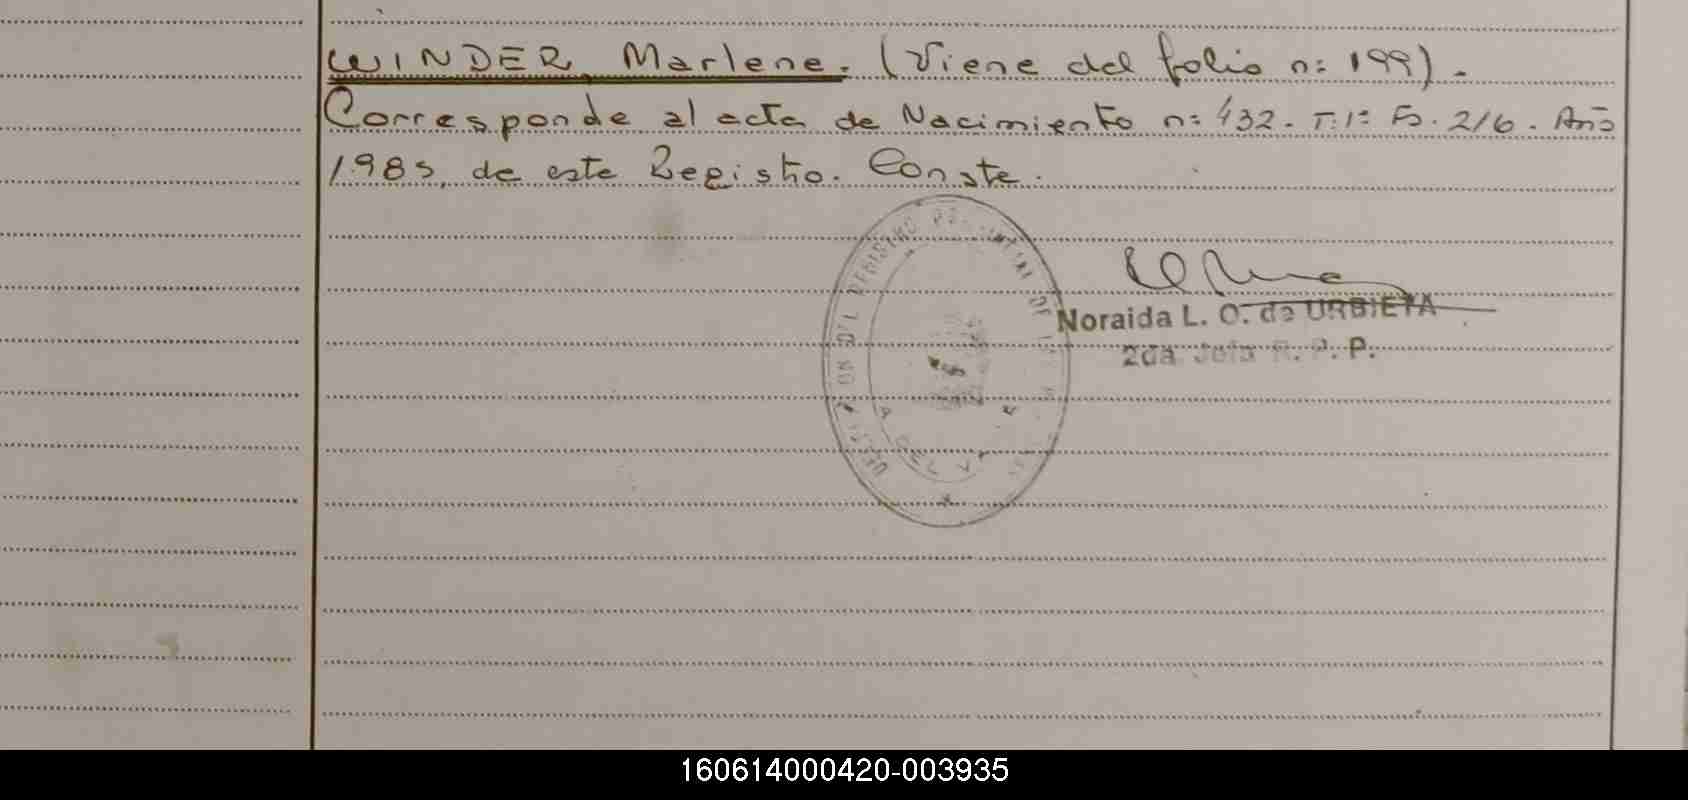 WINDER, Marlene. (Viene del folio n: 199).
Corresponde al acta de Nacimiento n: 432. T: 1º Fo. 216. Año
1985, de este Registro. Conste.
Noraida L. O. de URBIETA
2da Jefa R. P. P.
160614000420-003935